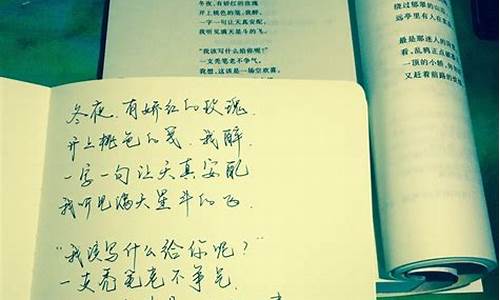 冬夜，有娇红的玫瑰
开上桃色的笺，我醉，
一字一句让天真安配，
我听见满天星斗的飞。
“我该写什么给你呢？”
一支秃笔老不争气。
我想，这该是一场空欢喜。
绕过郁郁的山
远亭里有人在
最是那迷人的
看，乱鸦正点破
一顶的小轿，
又赶着前路的
冬夜，有娇红的玫瑰，
开上桃色的笺，我醉，
一字一句让天真安配
我听见满天星斗的飞.
“我该写什么给你呢？”
一支秃笔老不争气.